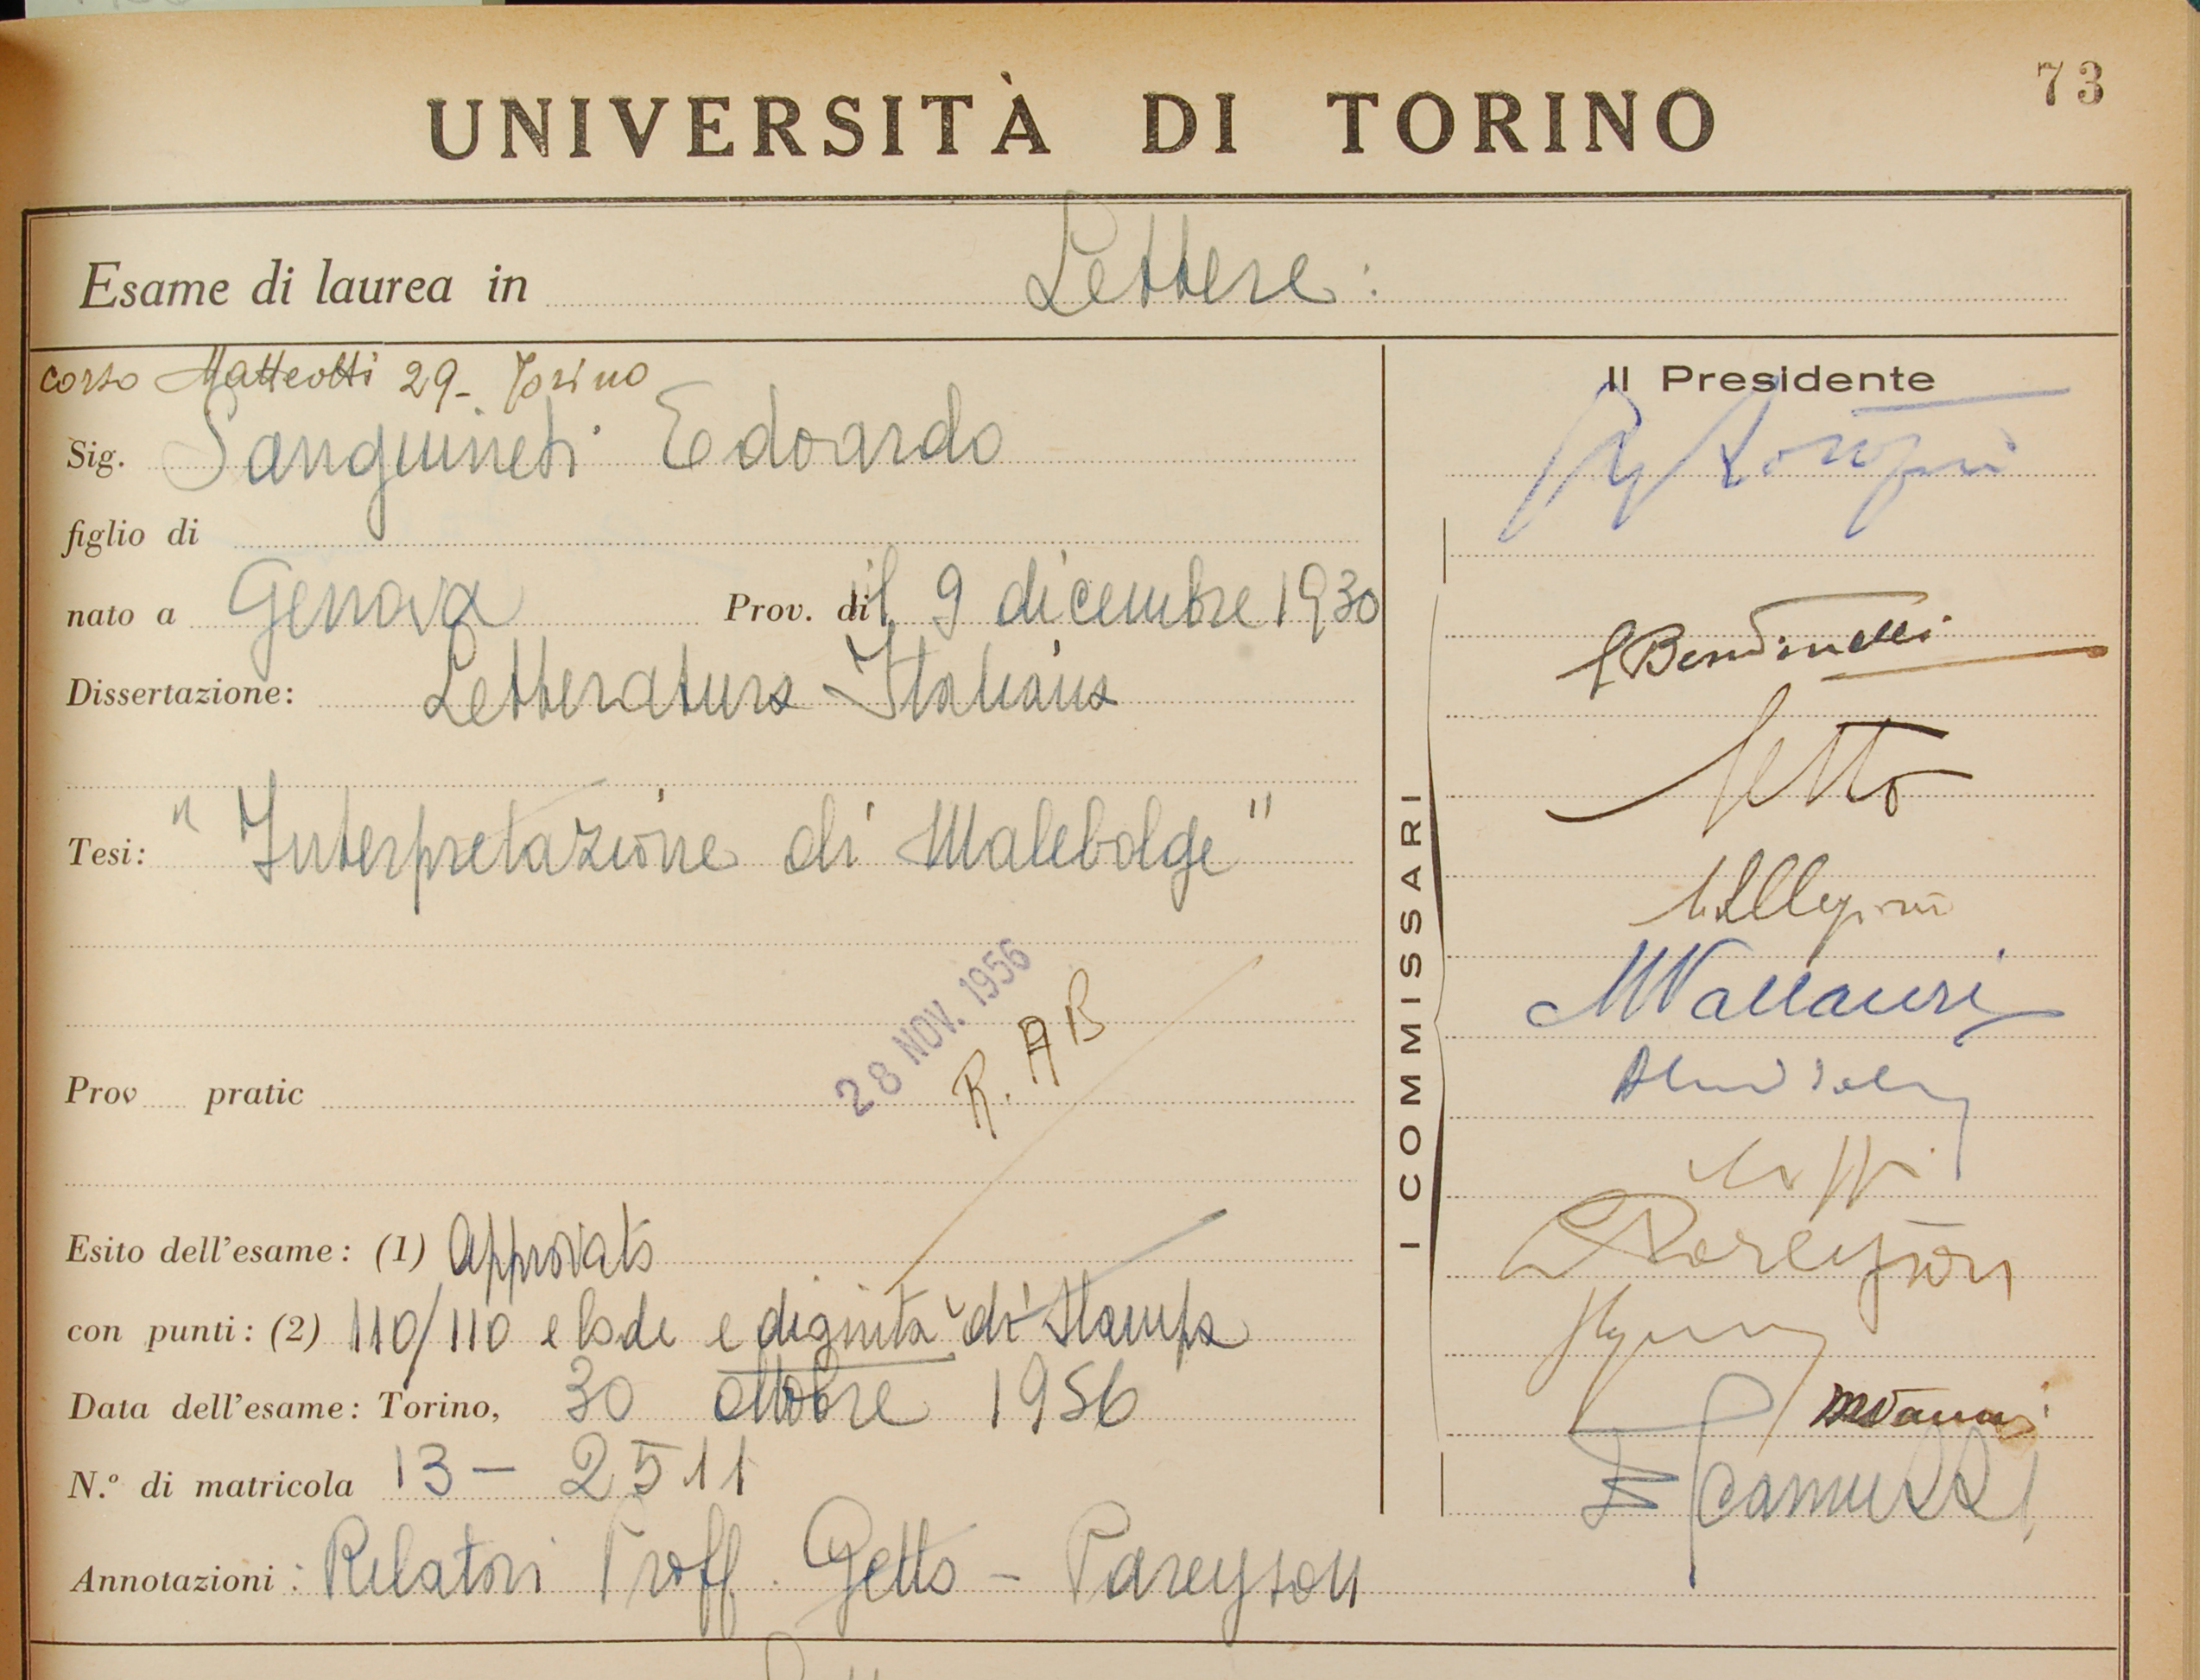 73
UNIVERSITÀ DI TORINO
Esame di laurea in Lettere:
corso Matteotti 29- Torino
Sig. Sanguineti Edoardo
figlio di
nato a Genova Prov. di il 9 dicembre 1930
Dissertazione: Letteratura Italiana
Tesi: "Interpretazione di Malebolge"
28 NOV. 1956
R. AB
Prov pratic
Esito dell'esame: (1) approvato
con punti: (2) 110/110 e lode e dignità di stampa
Data dell'esame: Torino, 30 ottobre 1956
N.º di matricola 13- 2511
Annotazioni: Relatori Proff. Getto - Pareyson
Il Presidente
I COMMISSARI
Bendinelli
Getto
Pellegrini
Vallauri
Pareyson